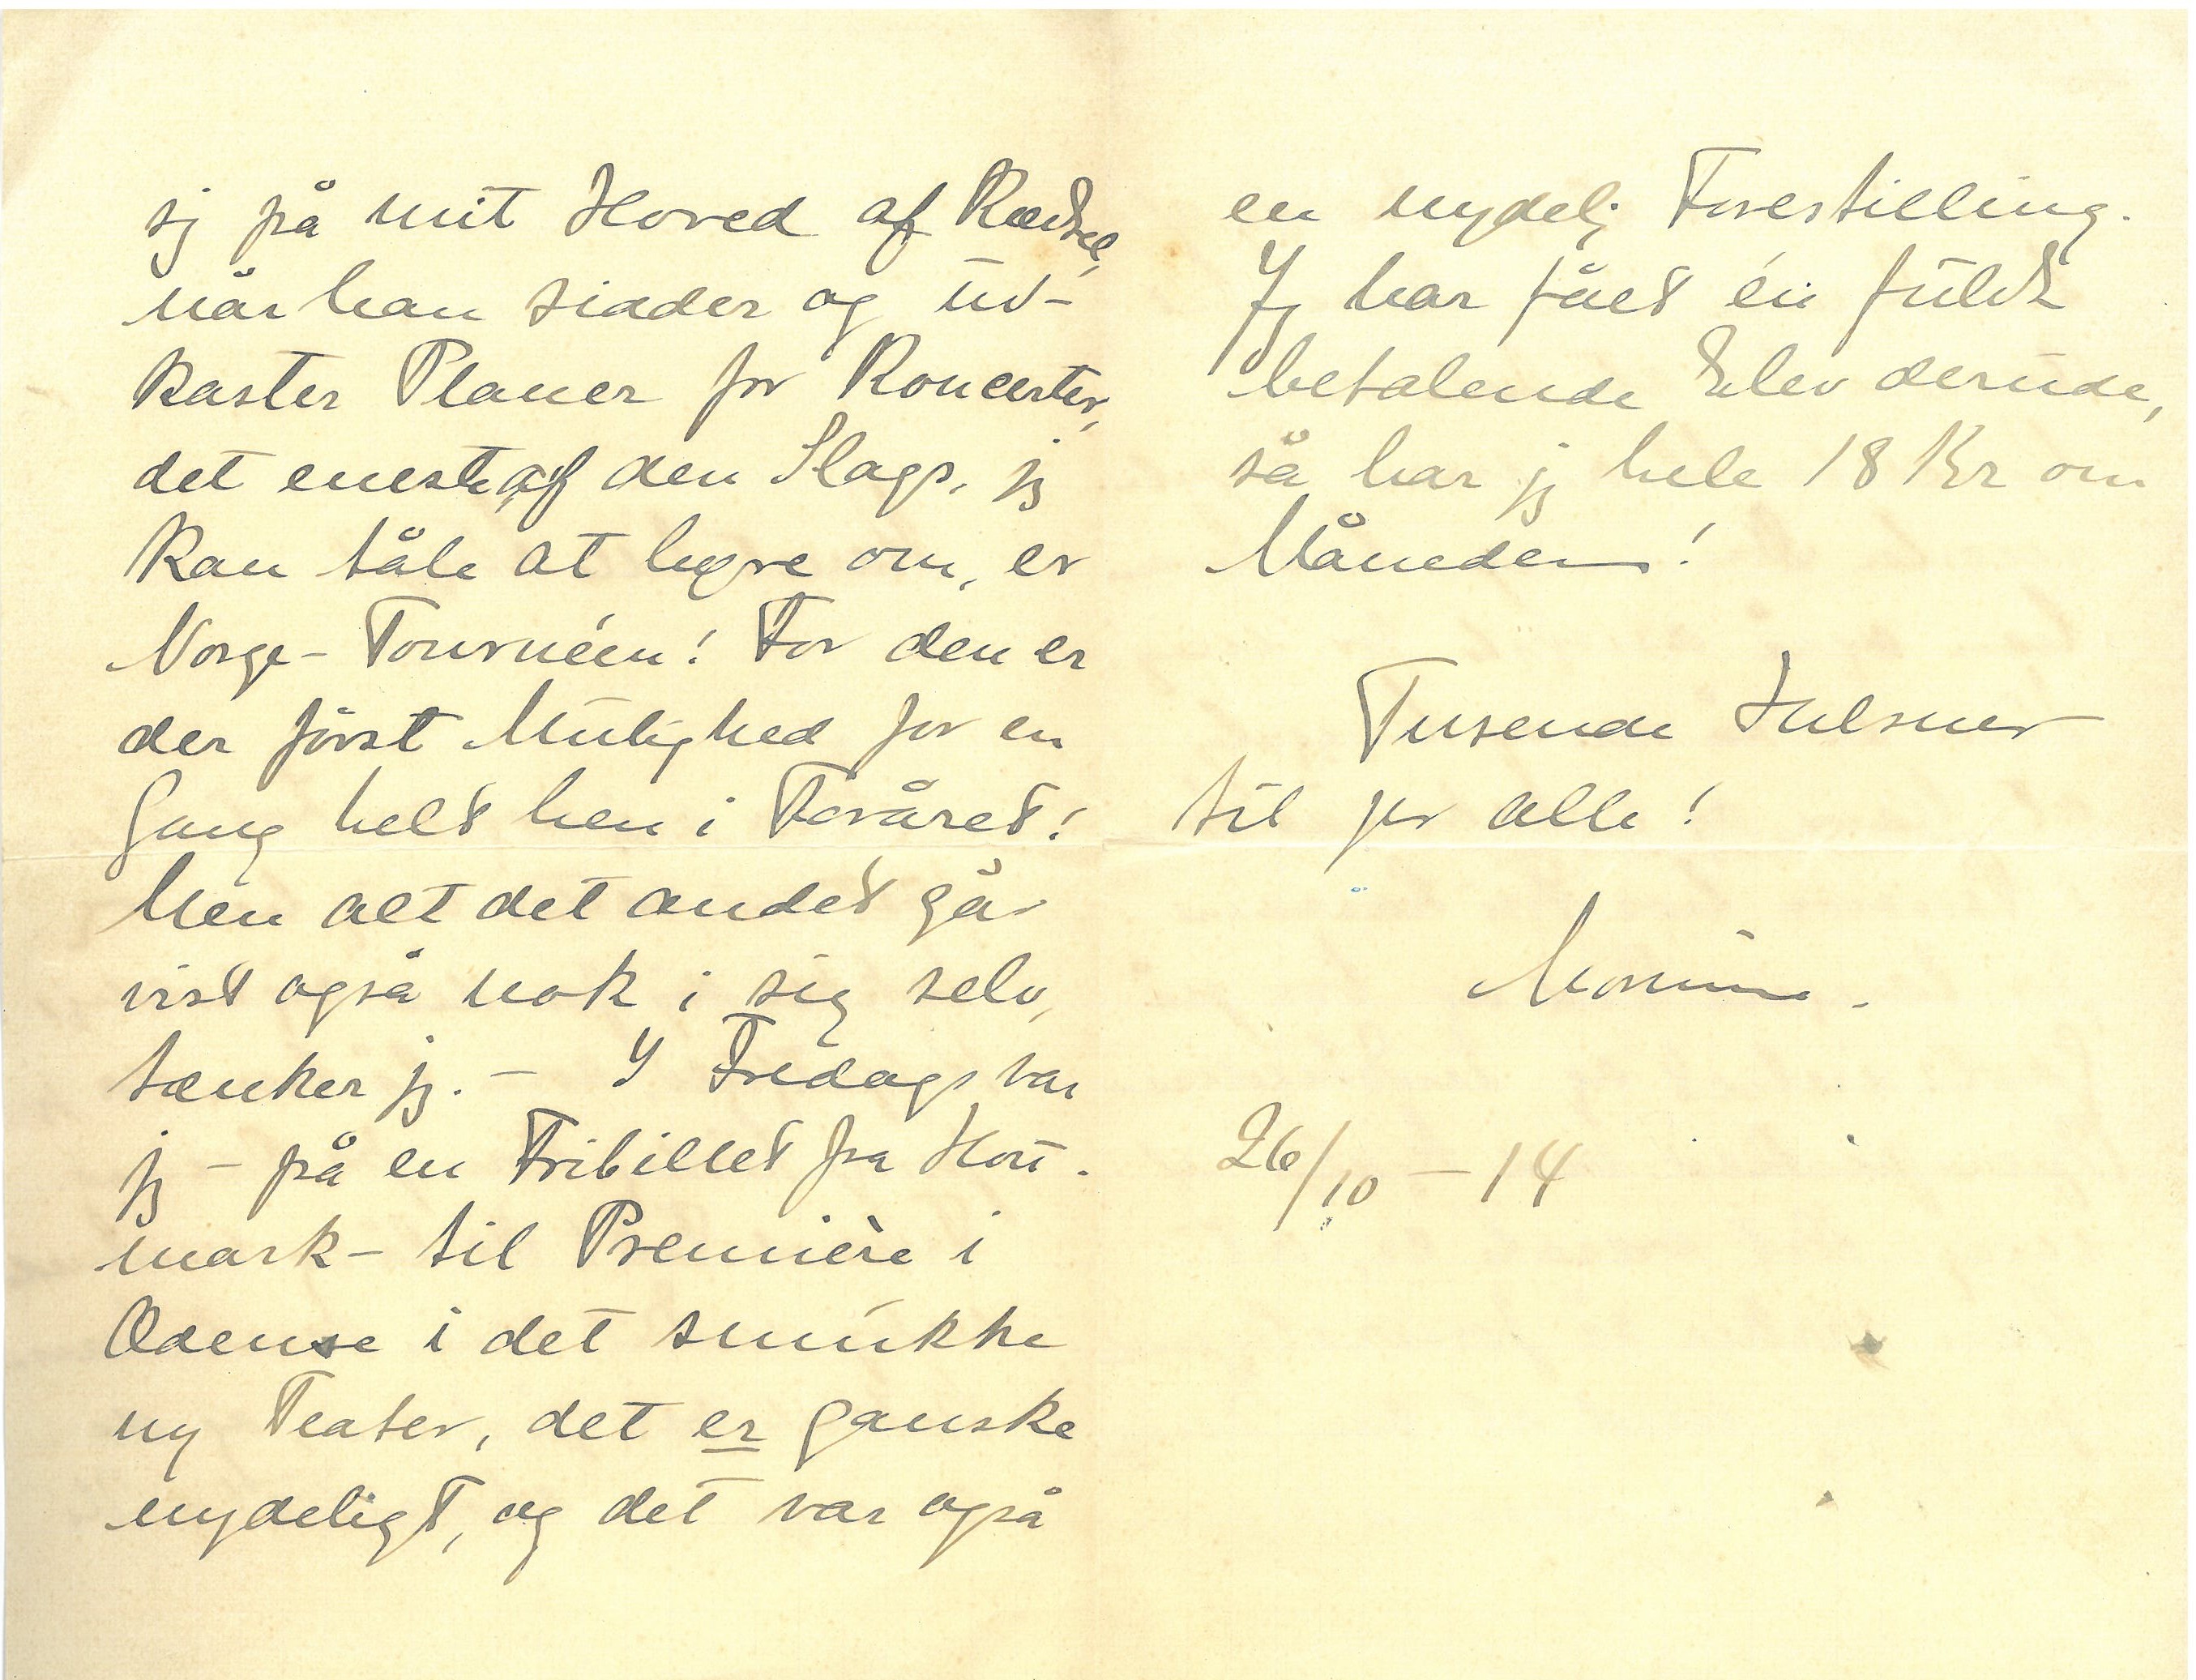 sig på mit Hoved af Rædsel,
når han sidder og ud-
kaster Planer for Koncerter,
det eneste af den Slags, jeg
kan tåle at høre om, er
Norge-Tournéen! For den er
der først Mulighed for en
Gang helt hen i Foråret!
Men alt det andet går
vist også nok i sig selv,
tænker jeg. – I Fredags var
jeg – på en Fribillet fra Hou-
mark – til Première i
Odense i det smukke
ny Teater, det er ganske
nydeligt, og det var også
en nydelig Forestilling.
Jeg har fået én fuldt
betalende Elev derude,
så har jeg hele 18 Kr om
Måneden!
Tusende Hilsner
til jer alle!
26/10 – 14